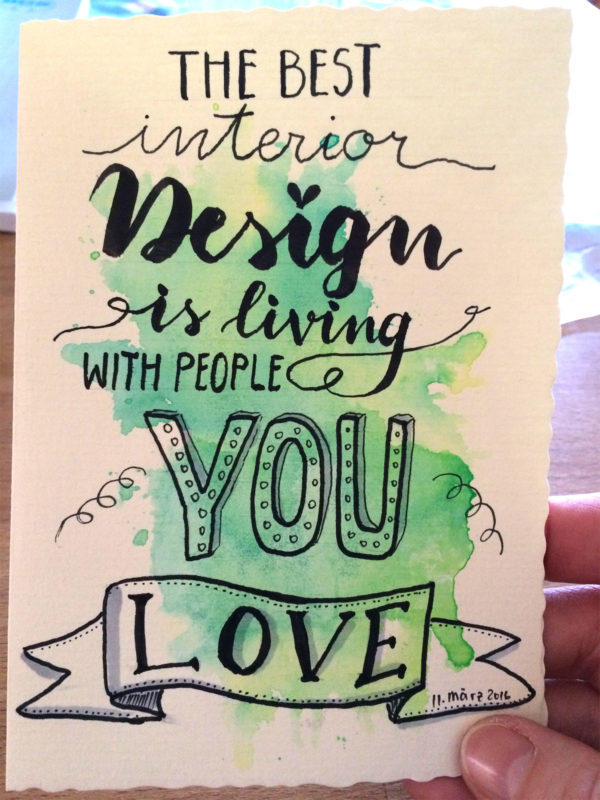 THE BEST
interior
Design
is living
WITH PEOPLE
YOU
LOVE
11. märz 2016